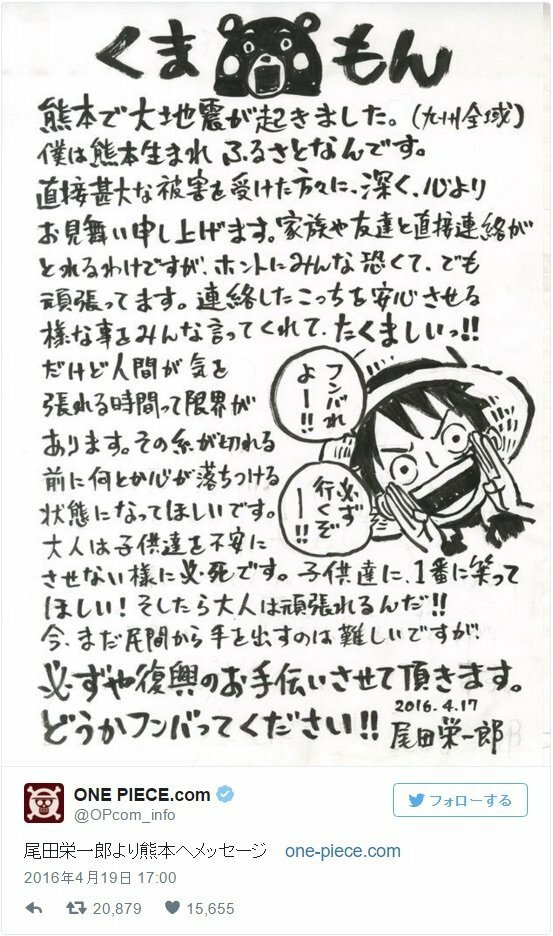 くま もん
熊本で大地震が起きました。(九州全域)
僕は熊本生まれ ふるさとなんです。
直接甚大な被害を受けた方々に、深く、心より
お見舞い申し上げます。家族や友達と直接連絡が
とれるわけですが、ホントにみんな恐くて、でも
頑張ってます。連絡したこっちを安心させる
様な事をみんな言ってくれて、たくましいっ!!
だけど人間が気を
張れる時間って限界が
あります。その糸が切れる
前に何とか心が落ちつける
状態になってほしいです。
大人は子供達を不安に
させない様に必死です。子供達に、1番に笑って
ほしい!そしたら大人は頑張れるんだ!!
今、まだ民間から手を出すのは難しいですが、
必ずや復興のお手伝いさせて頂きます。
どうかフンバってください!!
フンバれ
よー!!
必ず
行くぞ
ー!!
2016.4.17
尾田栄一郎
ONE PIECE.com
@OPcom_info
フォローする
尾田栄一郎より熊本へメッセージ one-piece.com
2016年4月19日 17:00
20,879 15,655